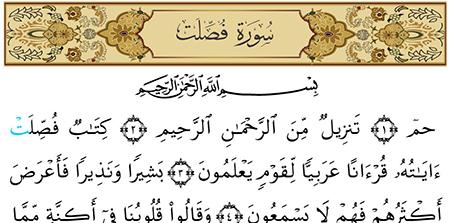 سُورَةُ فُصِّلَتْ
بِسْمِ ٱللَّهِ ٱلرَّحْمَٰنِ ٱلرَّحِيمِ
حمٓ ﴿١﴾ تَنزِيلٌ مِّنَ ٱلرَّحْمَٰنِ ٱلرَّحِيمِ ﴿٢﴾ كِتَٰبٌ فُصِّلَتْ
ءَايَٰتُهُۥ قُرْءَانًا عَرَبِيًّا لِّقَوْمٍ يَعْلَمُونَ ﴿٣﴾ بَشِيرًا وَنَذِيرًا فَأَعْرَضَ
أَكْثَرُهُمْ فَهُمْ لَا يَسْمَعُونَ ﴿٤﴾ وَقَالُوا۟ قُلُوبُنَا فِىٓ أَكِنَّةٍ مِّمَّا